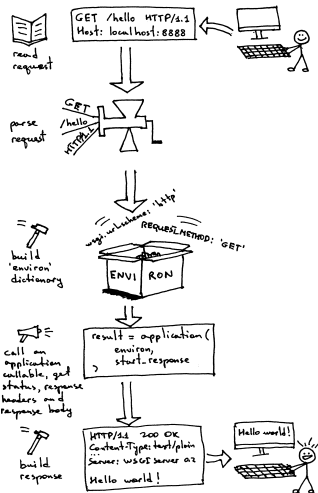 GET /hello HTTP/1.1
Host: localhost:8888
read
request
GET
/hello
HTTP/1.1
parse
request
wsgi.url_scheme: 'http'
REQUEST_METHOD: 'GET'
ENVIRON
build
'environ'
dictionary
result = application(
environ,
start_response
)
call an
application
callable, get
status, response
headers and
response body
HTTP/1.1 200 OK
Content-Type: text/plain
...
Server: WSGIServer 0.2
Hello world!
Hello world!
build
response